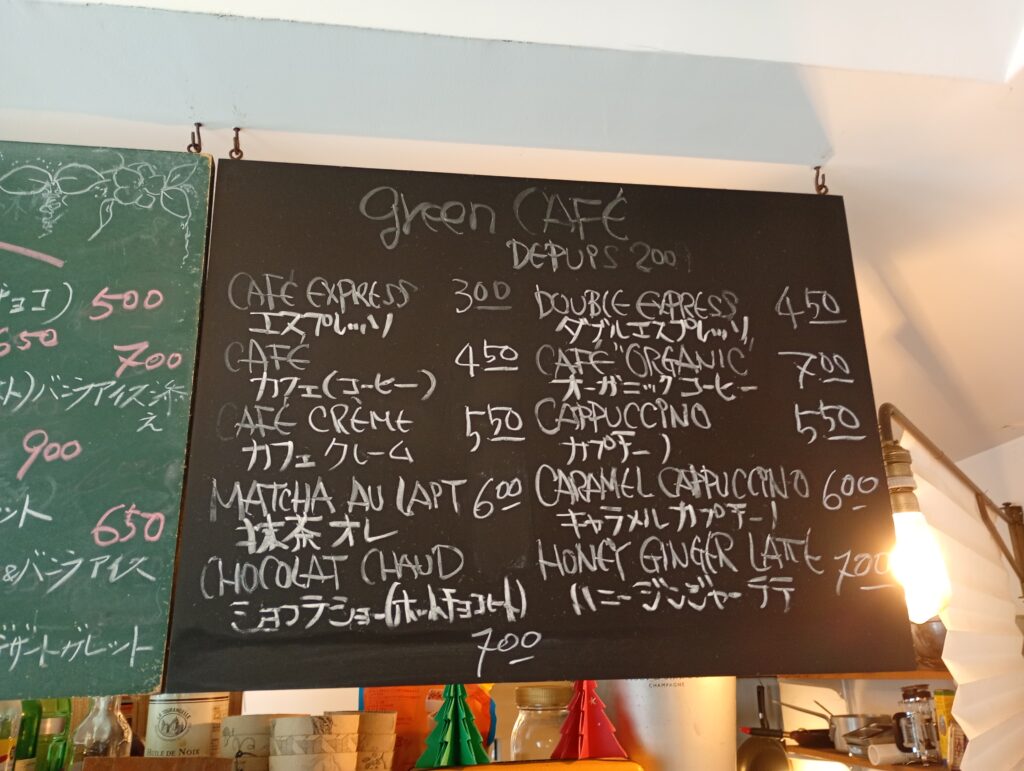 green CAFÉ
DEPUPS 2001
CAFÉ EXPRESS 300
エスプレッソ
CAFÉ 450
カフェ(コーヒー)
CAFÉ CRÈME 550
カフェクレーム
MATCHA AU LAPT 600
抹茶オレ
CHOCOLAT CHAUD
ショコラショー(ホットチョコレート)
700
DOUBLE EXPRESS 450
ダブルエスプレッソ
CAFÉ "ORGANIC" 700
オーガニックコーヒー
CAPPUCCINO 550
カプチーノ
CARAMEL CAPPUCCINO 600
キャラメルカプチーノ
HONEY GINGER LATTE 700
ハニージンジャーラテ
チョコ) 500
650
700
ト)バニラアイス添
え
900
ット
650
&バニラアイス
デザートガレット
HUILE DE NOIX
CHAMPAGNE